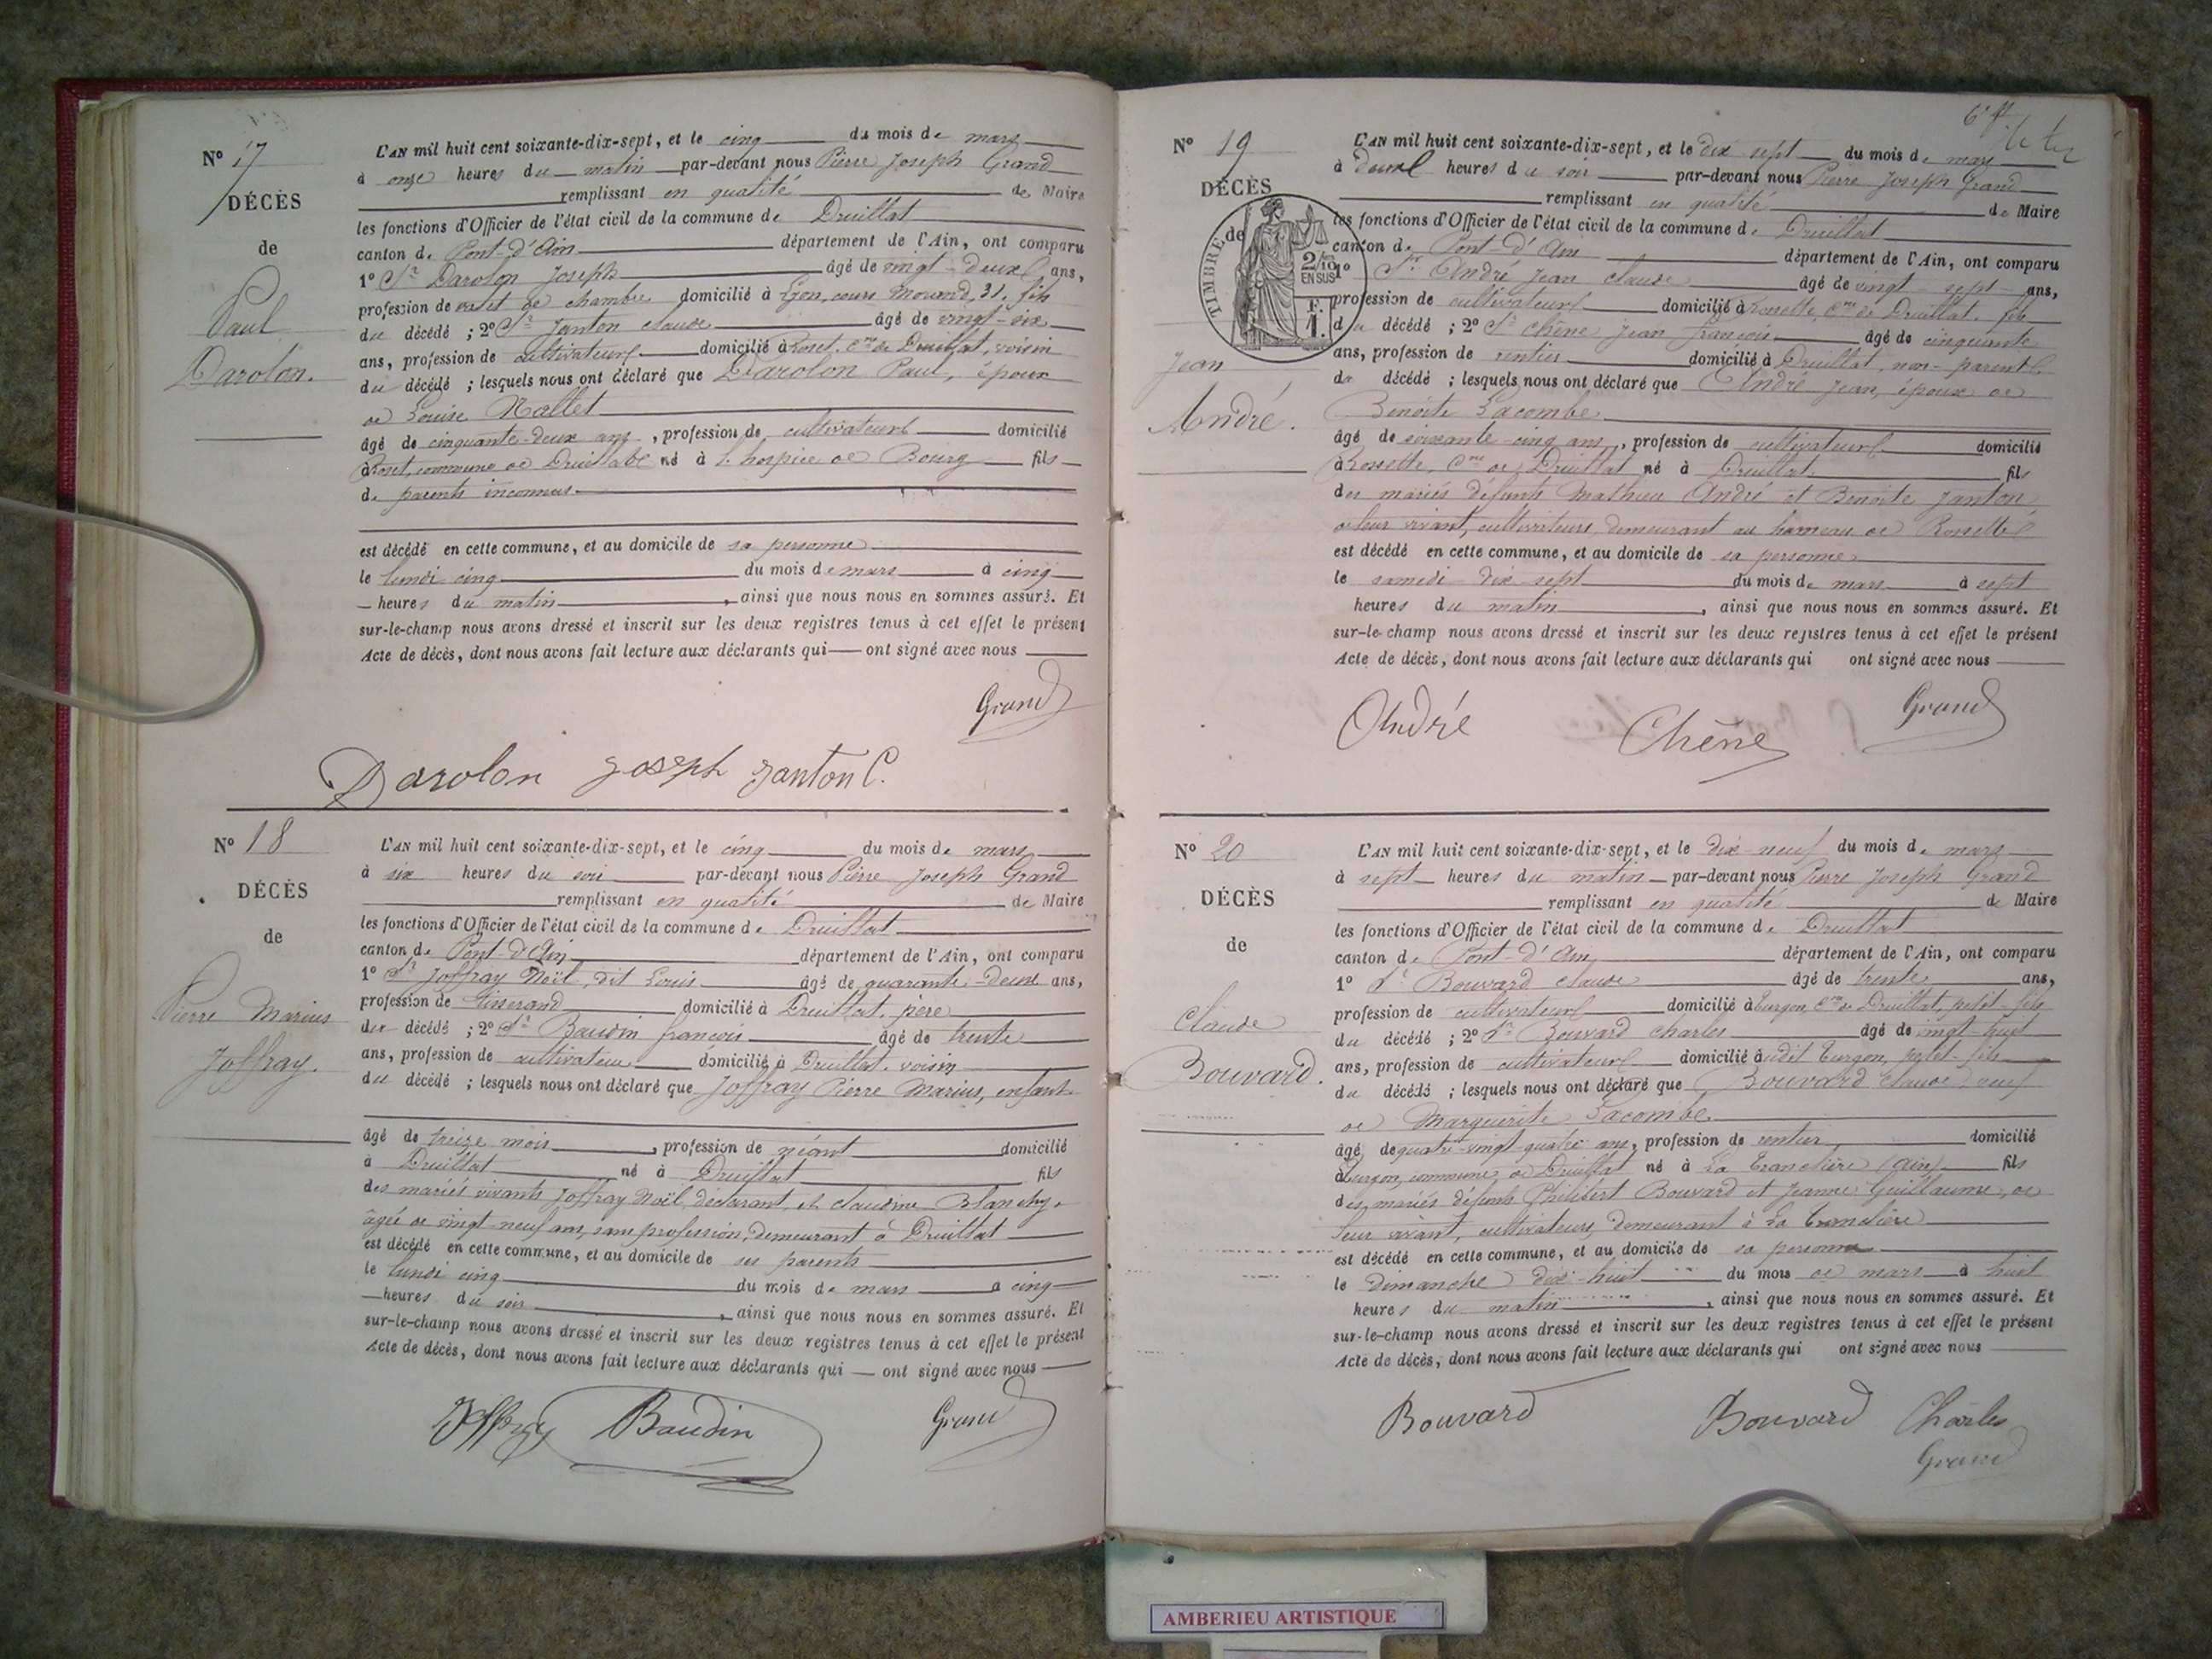 Nº 17
DÉCÈS
de
Paul
Darolon.
L'AN mil huit cent soixante-dix-sept, et le cinq du mois de mars
à onze heures du matin par-devant nous Pierre Joseph Grand
remplissant en qualité de Maire
les fonctions d'Officier de l'état civil de la commune de Druillat
canton de Pont-d'Ain département de l'Ain, ont comparu
1º Sr Darolon Joseph âgé de vingt-deux ans,
profession de valet de chambre domicilié à Lyon, cours Morand, 31, fils
du décédé ; 2º Sr Janton claude âgé de vingt-six
ans, profession de cultivateur domicilié à Roset, cne de Druillat, voisin
du décédé ; lesquels nous ont déclaré que Darolon Paul, époux
de Louise Mallet
âgé de cinquante-deux ans, profession de cultivateur domicilié
à Roset, commune de Druillat né à l'hospice de Bourg fils
de parents inconnus
est décédé en cette commune, et au domicile de sa personne
le lundi cinq du mois de mars à cinq
heures du matin, ainsi que nous nous en sommes assuré. Et
sur-le-champ nous avons dressé et inscrit sur les deux registres tenus à cet effet le présent
Acte de décès, dont nous avons fait lecture aux déclarants qui ont signé avec nous
Grand
Darolon Joseph Janton C.
Nº 18
DÉCÈS
de
Pierre Marius
Joffray.
L'AN mil huit cent soixante-dix-sept, et le cinq du mois de mars
à six heures du soir par-devant nous Pierre Joseph Grand
remplissant en qualité de Maire
les fonctions d'Officier de l'état civil de la commune de Druillat
canton de Pont-d'Ain département de l'Ain, ont comparu
1º Sr Joffray Noël, dit Louis âgé de quarante-deux ans,
profession de tisserand domicilié à Druillat, père
du décédé ; 2º Sr Baudin françois âgé de trente
ans, profession de cultivateur domicilié à Druillat, voisin
du décédé ; lesquels nous ont déclaré que Joffray Pierre Marius, enfant
âgé de treize mois, profession de néant domicilié
à Druillat né à Druillat fils
des mariés vivants Joffray Noël, déclarant, et claudine Blanchy,
âgée de vingt-neuf ans, sans profession, demeurant à Druillat
est décédé en cette commune, et au domicile de ses parents
le lundi cinq du mois de mars à cinq
heures du soir, ainsi que nous nous en sommes assuré. Et
sur-le-champ nous avons dressé et inscrit sur les deux registres tenus à cet effet le présent
Acte de décès, dont nous avons fait lecture aux déclarants qui ont signé avec nous
Joffray Baudin Grand
Nº 19
DÉCÈS
de
TIMBRE
2/10 EN SUS
1 F.
Jean
André.
L'AN mil huit cent soixante-dix-sept, et le dix sept du mois de mars
à deux heures du soir par-devant nous Pierre Joseph Grand
remplissant en qualité de Maire
les fonctions d'Officier de l'état civil de la commune de Druillat
canton de Pont-d'Ain département de l'Ain, ont comparu
1º Sr André Jean claude âgé de vingt-sept ans,
profession de cultivateur domicilié à Rossette, cne de Druillat, fils
du décédé ; 2º Sr Chêne Jean françois âgé de cinquante
ans, profession de rentier domicilié à Druillat, non-parent
du décédé ; lesquels nous ont déclaré que André Jean, époux de
Benoite Lacombe
âgé de soixante-cinq ans, profession de cultivateur domicilié
à Rossette, cne de Druillat né à Druillat fils
des mariés défunts Mathieu André et Benoite Janton
de leur vivant, cultivateurs demeurant au hameau de Rossette
est décédé en cette commune, et au domicile de sa personne
le samedi dix-sept du mois de mars à sept
heures du matin, ainsi que nous nous en sommes assuré. Et
sur-le-champ nous avons dressé et inscrit sur les deux registres tenus à cet effet le présent
Acte de décès, dont nous avons fait lecture aux déclarants qui ont signé avec nous
André Chêne Grand
Nº 20
DÉCÈS
de
Claude
Bouvard.
L'AN mil huit cent soixante-dix-sept, et le dix-neuf du mois de mars
à sept heures du matin par-devant nous Pierre Joseph Grand
remplissant en qualité de Maire
les fonctions d'Officier de l'état civil de la commune de Druillat
canton de Pont-d'Ain département de l'Ain, ont comparu
1º Sr Bouvard claude âgé de trente ans,
profession de cultivateur domicilié à Turgon, cne de Druillat, petit-fils
du décédé ; 2º Sr Bouvard charles âgé de vingt-huit
ans, profession de cultivateur domicilié audit Turgon, petit-fils
du décédé ; lesquels nous ont déclaré que Bouvard claude, veuf
de Marguerite Lacombe
âgé de quatre-vingt-quatre ans, profession de rentier domicilié
à Turgon, commune de Druillat né à La Tranclière (Ain) fils
des mariés défunts Philibert Bouvard et Jeanne Guillaume, de
leur vivant, cultivateurs, demeurant à La Tranclière
est décédé en cette commune, et au domicile de sa personne
le dimanche dix-huit du mois de mars à huit
heures du matin, ainsi que nous nous en sommes assuré. Et
sur-le-champ nous avons dressé et inscrit sur les deux registres tenus à cet effet le présent
Acte de décès, dont nous avons fait lecture aux déclarants qui ont signé avec nous
Bouvard Bouvard Charles
Grand
AMBERIEU ARTISTIQUE